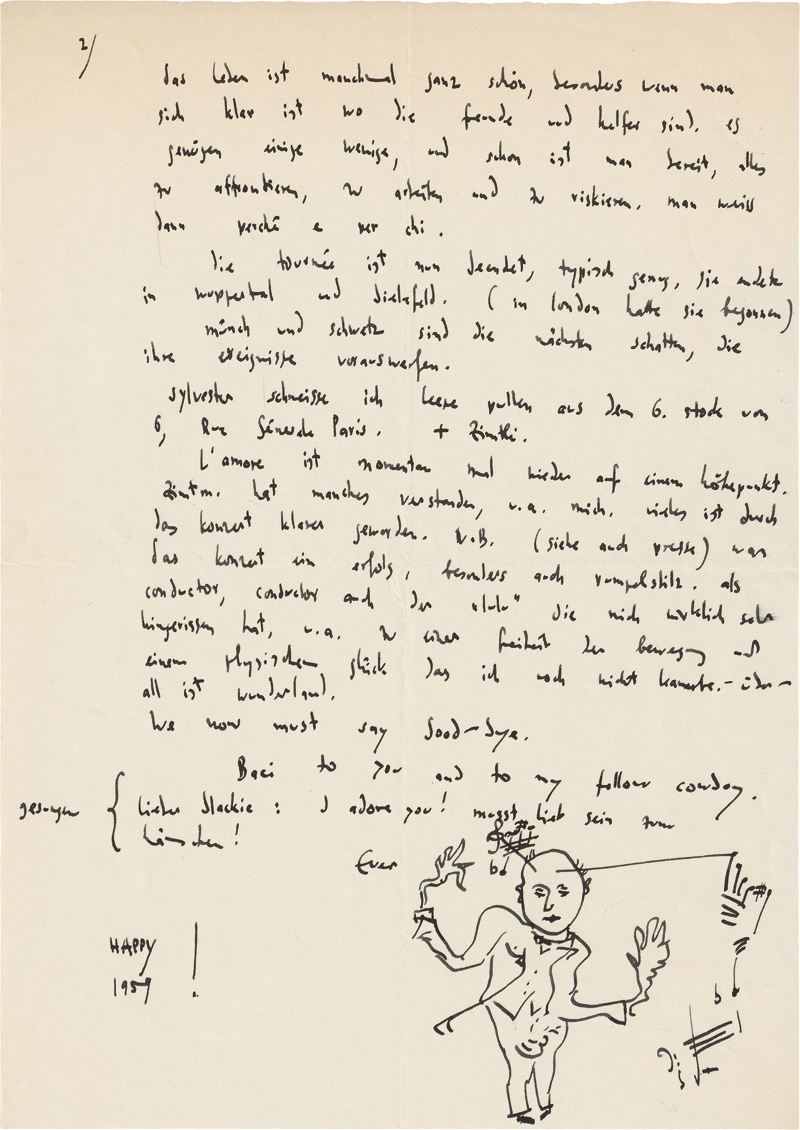 2/
das leben ist manchmal ganz schön, besonders wenn man
sich klar ist wo die freunde und helfer sind. es
genügen einige wenige, und schon ist man bereit, alles
zu affrontieren, zu arbeiten und zu riskieren. man weiss
dann perché e per chi.
die tournée ist nun beendet, typisch genug, sie endete
in wuppertal und bielefeld. (in london hatte sie begonnen)
münch und schweiz sind die nächsten schatten, die
ihre ereignisse vorauswerfen.
sylvester schmeisse ich leere pullen aus dem 6. stock von
6, Rue Générale Paris. +
L'amore ist momentan mal wieder auf einem höhepunkt.
hat manches verstanden, u.a. mich. vieles ist durch
das konzert klarer geworden. N.B. (siehe auch presse) war
das konzert ein erfolg, besonders auch rumpelstilz. als
conductor, conductor auch der "lulu" die mich wirklich sehr
hingerissen hat, u.a. zu einer freiheit der bewegung und
einem physischen glück das ich noch nicht kannte. – über-
all ist wunderland.
We now must say Good-bye.
Baci to you and to my fellow cowboy.
gesungen { lieber blackie : I adore you! musst lieb sein zum
hänschen!
Ever
HAPPY
1959 !